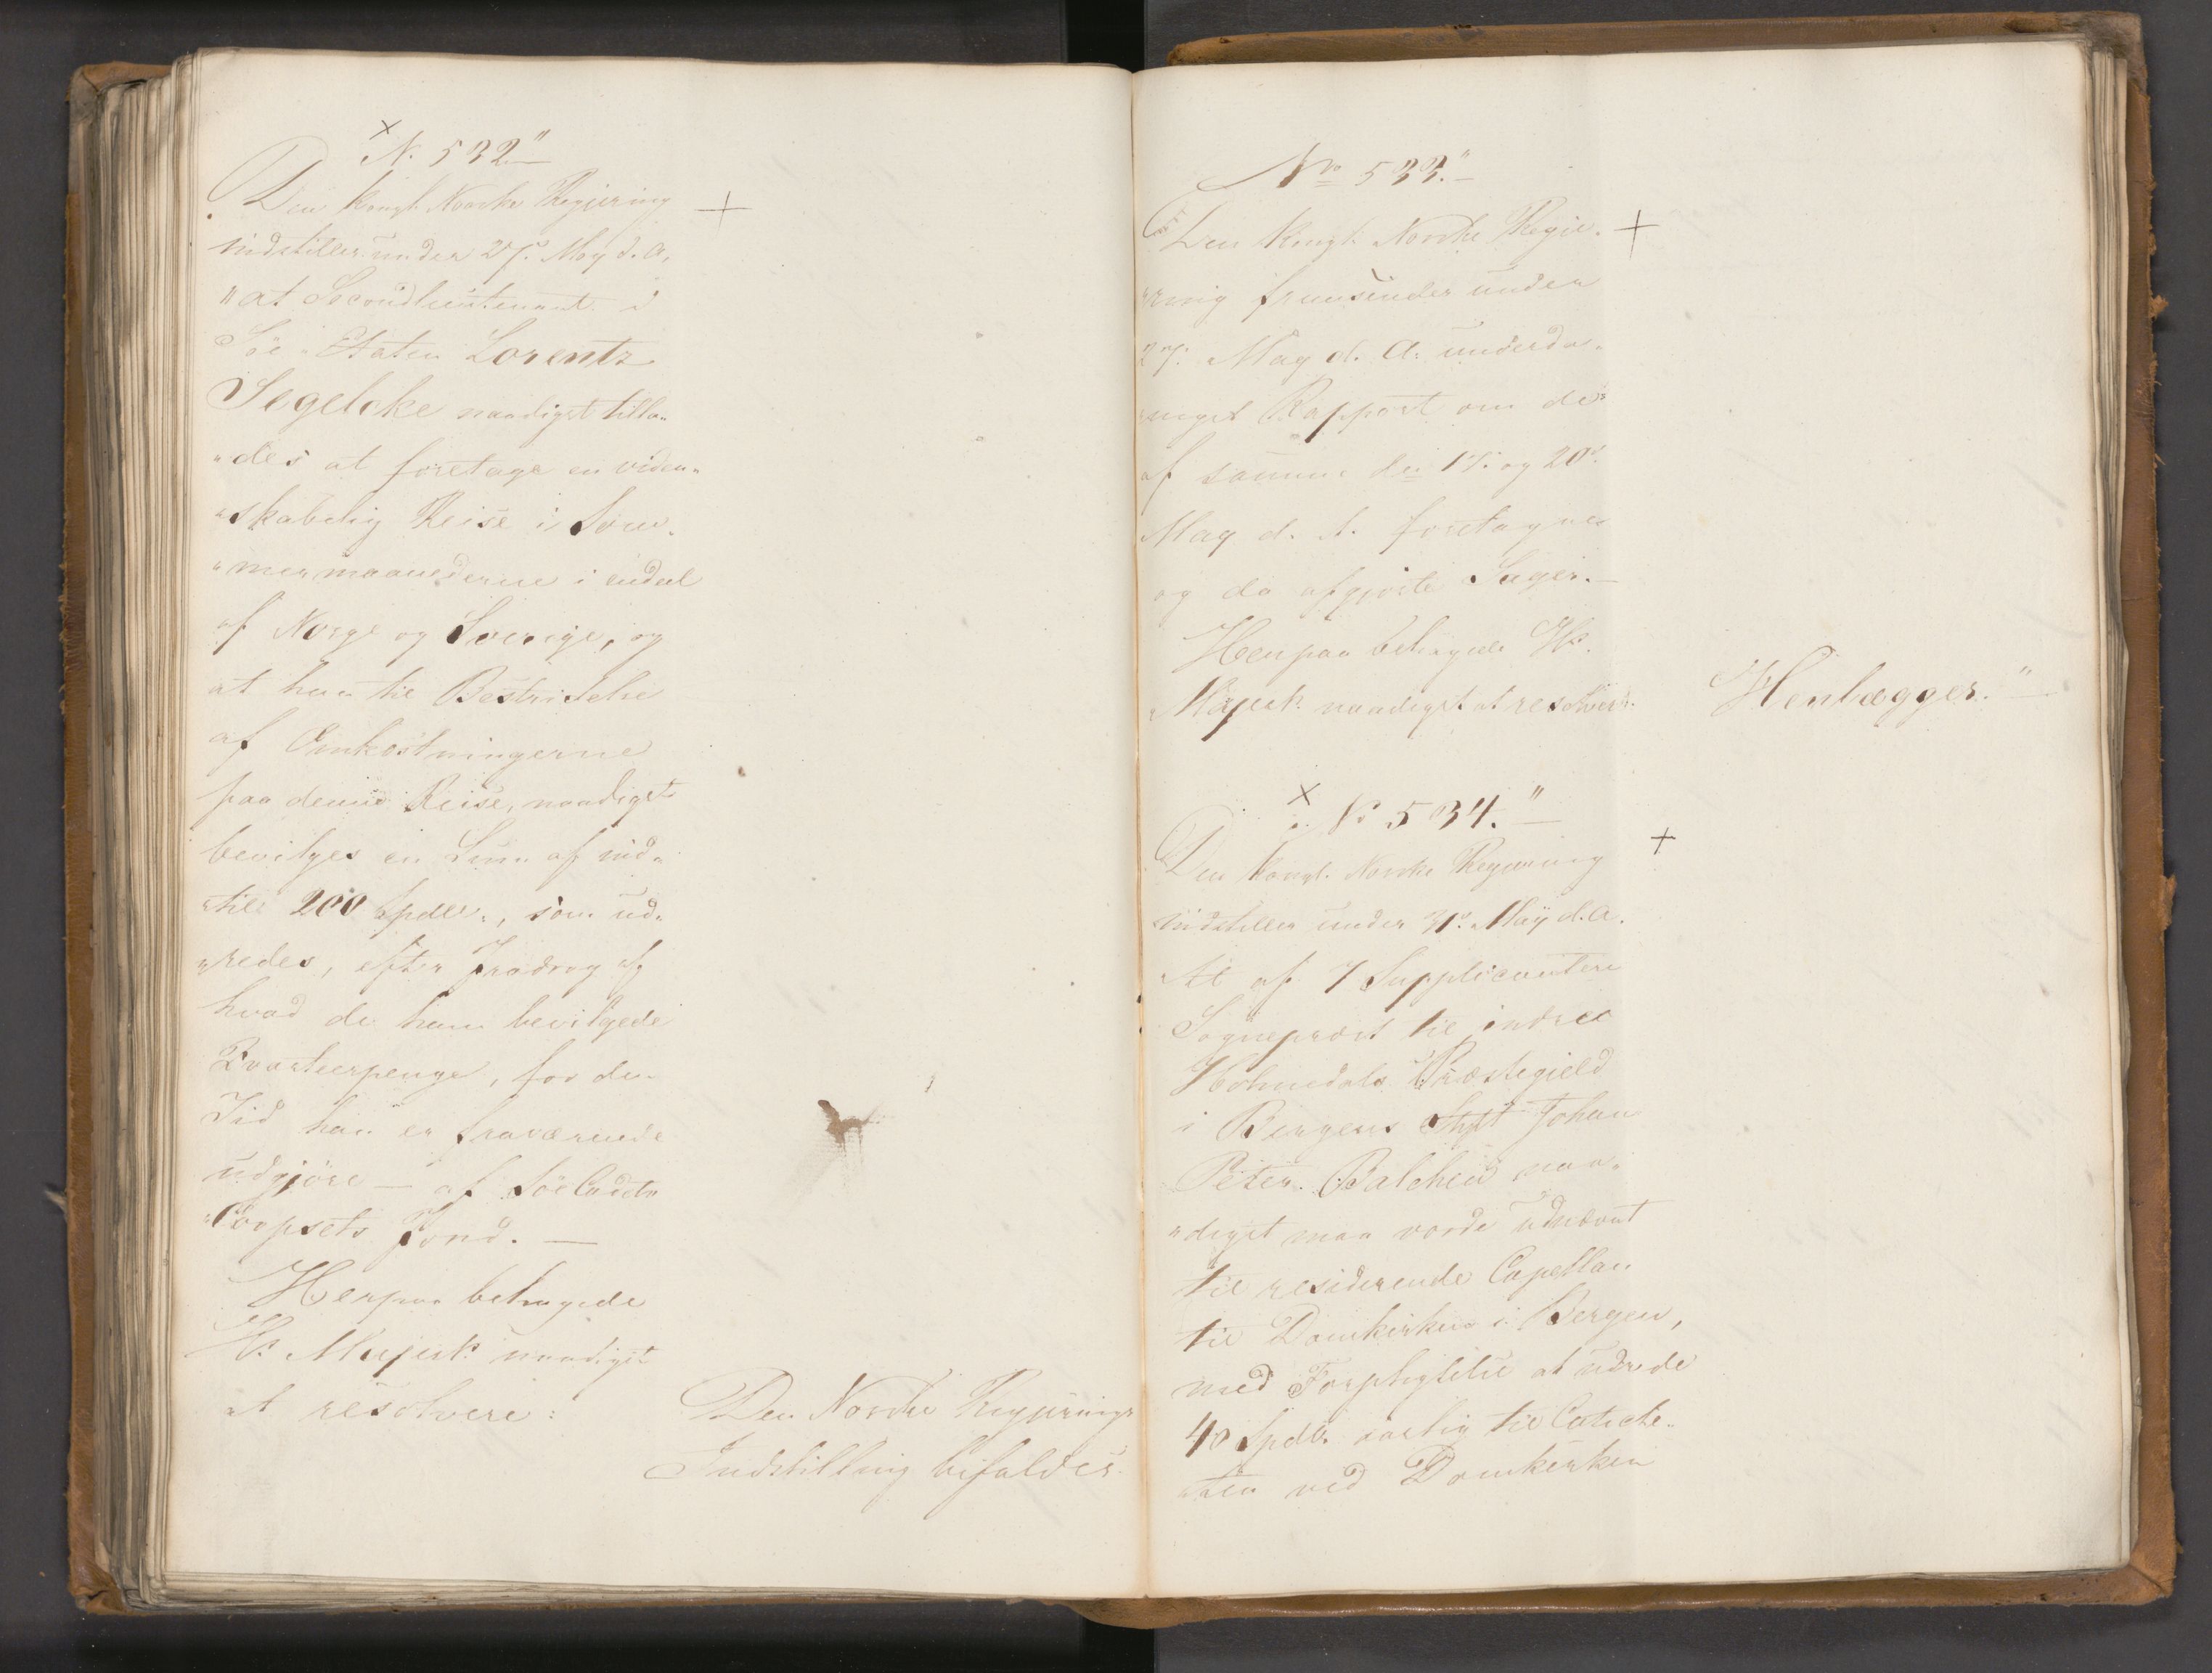 N. 532"
Den kongl. Norske Regjering
indstiller under 27. May d. A.
"at Secondlieutenant i
Søe-Etaten Lorentz
Segelcke naadigst tilla-
"des at foretage en viden-
"skabelig Reise i Som-
"mermaanederne i endeel
af Norge og Sverige, og
at ham til Bestridelse
af Omkostningerne
paa denne Reise, naadigst
bevilges en Sum af ind-
"til 200 Spdlr., som ud-
"redes, efter Fradrag af
hvad de ham bevilgede
Qvarteerpenge, for den
Tid han er fraværende
udgjøre — af Søe Cadet-
"Corpsets Fond. —
Herpaa behagede
Hs. Majest. naadigst
at resolvere:
Den Norske Regjerings
Indstilling bifaldes.
No 533."
Den Kongl. Norske Regje-
"ring fremsender under
27. May d. A. underda-
"nigst Rapport om de
af samme den 17. og 20.
May d. A. foretagne
og da afgjorte Sager. —
Herpaa behagede Hs.
Majest. naadigst at resolvere:
Henlægges."
No 534."
Den kongl. Norske Regjering
indstiller under 31. May d. A.
At af 7 Supplicantere
Sognepræst til indre
Holmedals Præstegield
i Bergens Stift Johan
Peter Balchen naa-
"digst maa vorde udnævnt
til residerende Capellan
til Domkirken i Bergen,
med Forpligtelse at udrede
40 Spdlr. aarlig til Cateche-
"ten ved Domkirken